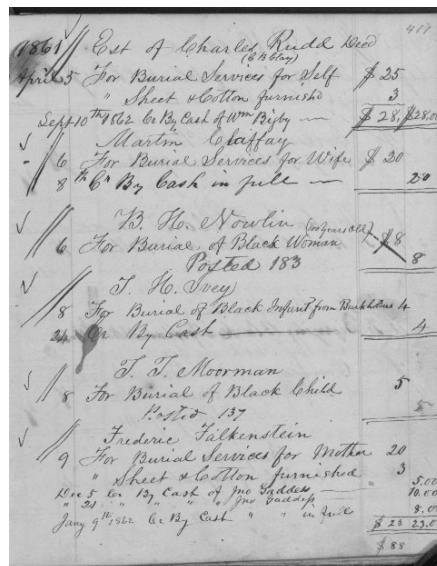 417
1861 Est of Charles Rudd Decd
(C B Clay)
April 5 For Burial Services for Self $ 25
" Sheet & Cotton furnishd 3
Sept 10th 1862 Cr By Cash of Wm Bigby — $ 28. $28.00
Martin Chaffay
6 For Burial Services for Wife $ 20
8th Cr By Cash in full — 20
B. H. Nowlin (100 years old)
6 For Burial of Black Woman $ 8
Posted 183 8
T. H. Ivey
8 For Burial of Black Infant from 4
24 Cr By Cash 4
T. T. Moorman
8 For Burial of Black Child 5
Posted 137 5
Frederic Falkenstein
9 For Burial Services for Mother 20
" Sheet & Cotton furnished 3
Dec 5 Cr By Cash of Jno Gaddess — 5.00
" 21 " " " " Jno Gaddess 10.00
Jany 9th 1862 Cr By Cash " " in full 8.00
$ 23 23.0
$ 88